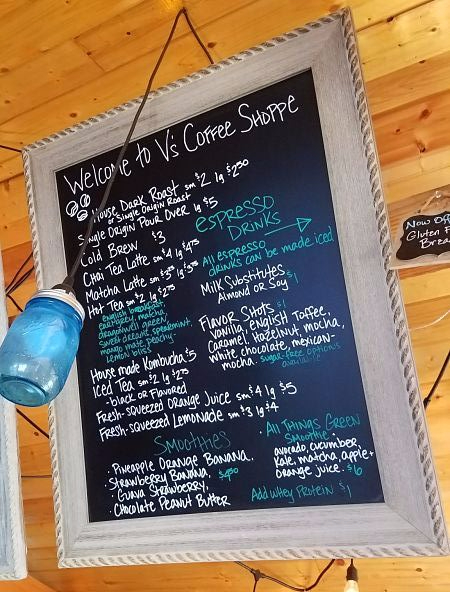 Welcome to V's Coffee Shoppe
House Dark Roast sm $2 lg $2.50
or Single Origin Roast
Single Origin Pour Over lg $5
Cold Brew $3
Chai Tea Latte sm $4 lg $4.75
Matcha Latte sm $3.50 lg
Hot Tea sm $2 lg $2.75
english breakfast,
earl grey, matcha,
dragonwell green,
sweet dreams, spearmint,
mango mate, peachy
Lemon bliss
House made Kombucha $5
Iced Tea sm $2 lg $2.50
· black or Flavored
Fresh-squeezed Orange Juice sm $4 lg $5
Fresh-squeezed Lemonade sm $3 lg $4
espresso
Drinks
All espresso
drinks can be made iced
Milk Substitutes
Almond or Soy $1
Flavor Shots $1
Vanilla, english Toffee,
Caramel, Hazelnut, mocha,
white chocolate, mexican-
mocha · sugar-free options
available
Smoothies
· Pineapple Orange Banana
· Strawberry Banana,
· Guava Strawberry, $4.50
· Chocolate Peanut Butter
· All Things Green
Smoothie ·
avocado, cucumber,
Kale, matcha, apple +
orange juice · $6
Add Whey Protein $1
Now Off
Gluten F
Brea